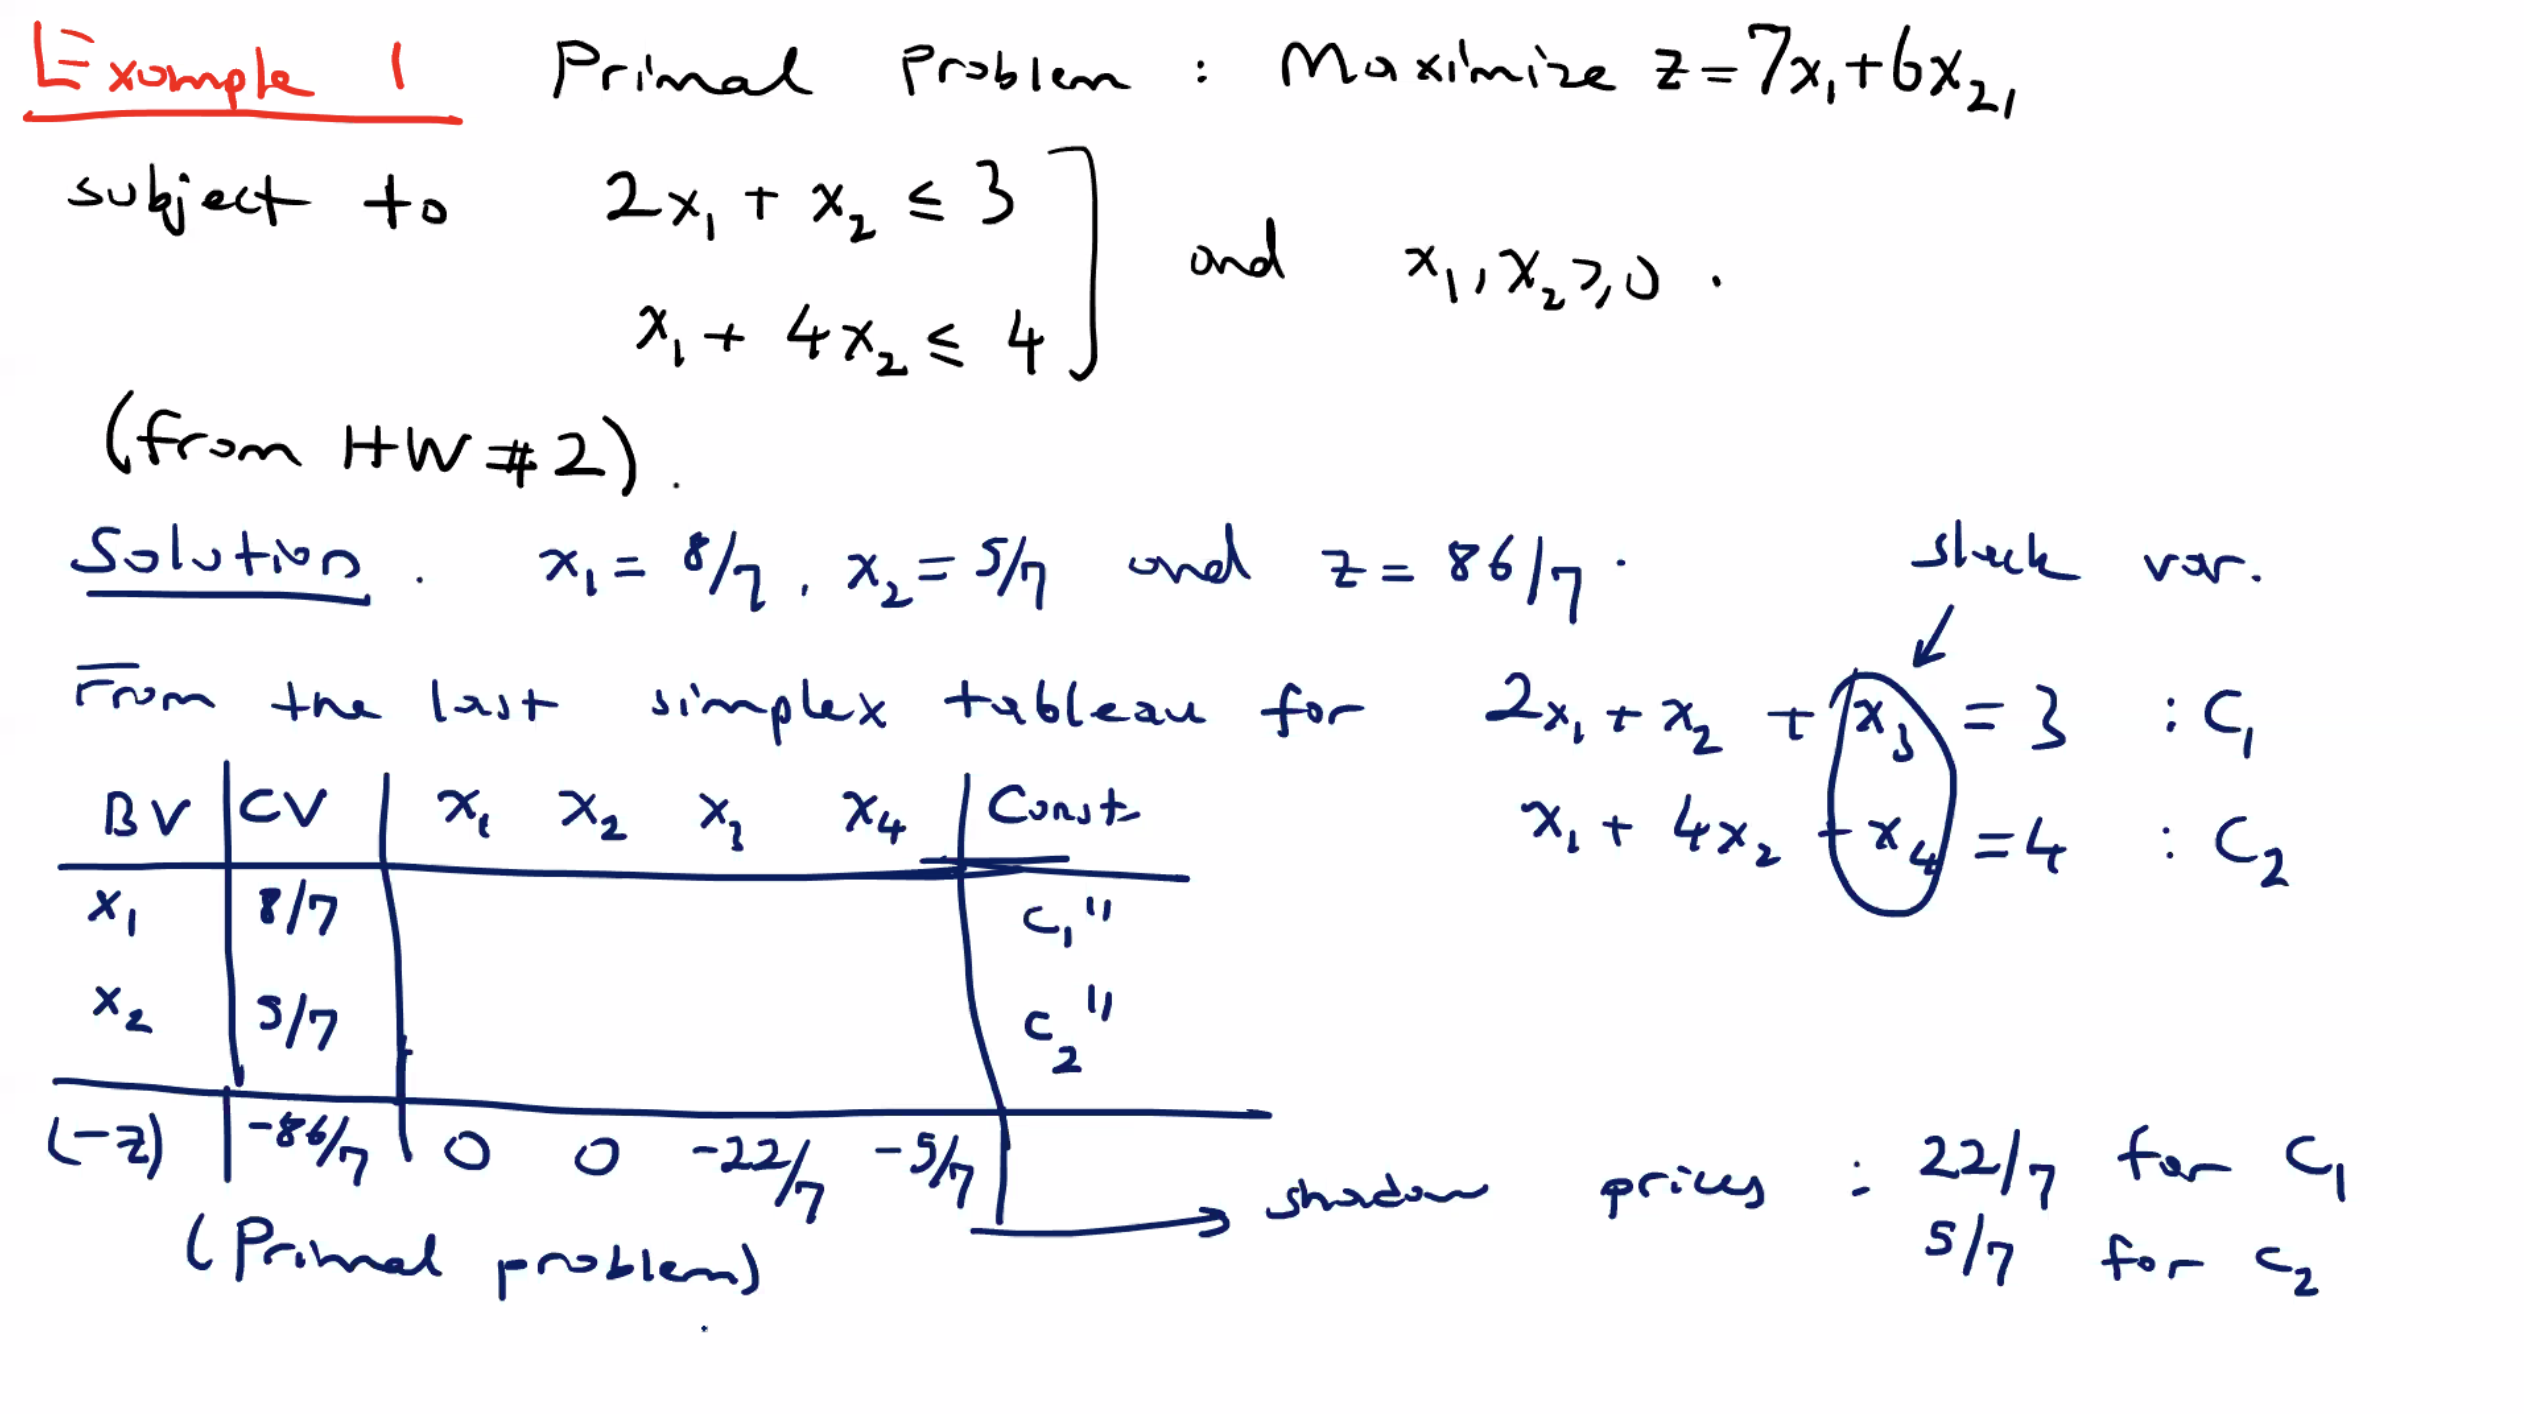 Example 1 Primal Problem : Maximize z=7x₁+6x₂,
subject to 2x₁ + x₂ ≤ 3
and x₁, x₂ ≥ 0 .
x₁ + 4x₂ ≤ 4
(from HW #2) .
Solution . x₁ = 8/7 , x₂ = 5/7 and z = 86/7 .
slack var.
From the last simplex tableau for 2x₁ + x₂ + x₃ = 3 : C₁
x₁ + 4x₂ + x₄ = 4 : C₂
BV CV x₁ x₂ x₃ x₄ Const.
x₁ 8/7 C₁"
x₂ 5/7 C₂"
(-z) -86/7 0 0 -22/7 -5/7
shadow prices : 22/7 for C₁
5/7 for C₂
(Primal problem)